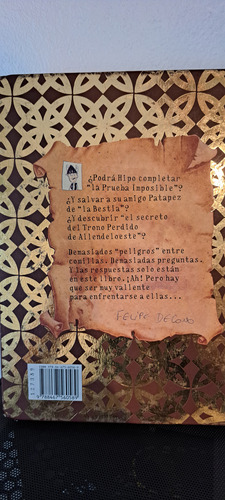 ¿Podrá Hipo completar
"la Prueba Imposible"?
¿Y salvar a su amigo Patapez
de "la Bestia"?
¿Y descubrir "el secreto
del Trono Perdido
de Allendeloeste"?
Demasiados "peligros" entre
comillas. Demasiadas preguntas.
Y las respuestas solo están
en este libro. ¡Ah! Pero hay
que ser muy valiente
para enfrentarse a ellas...
FELIPE
9788467560589